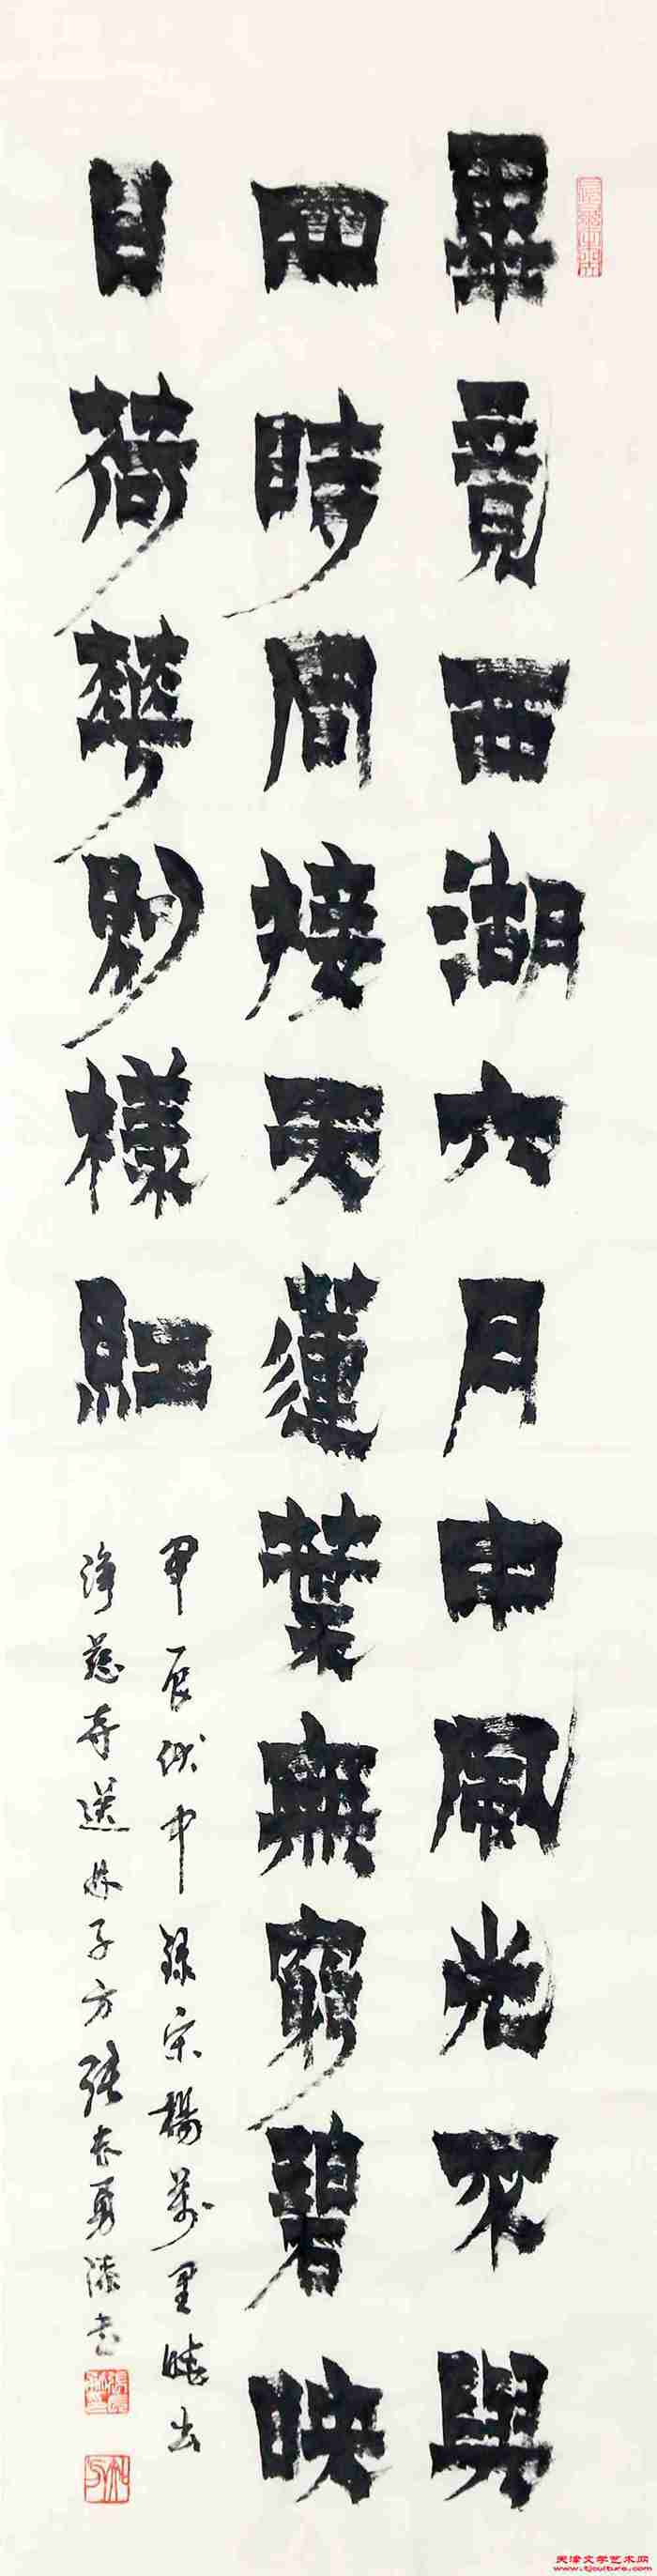 畢竟西湖六月中風光不與
四時同接天蓮葉無窮碧映
日荷華別樣紅
甲辰伏中錄宋楊萬里曉出
淨慈寺送林子方張長勇漆書
天津文学艺术网
www.tjculture.com